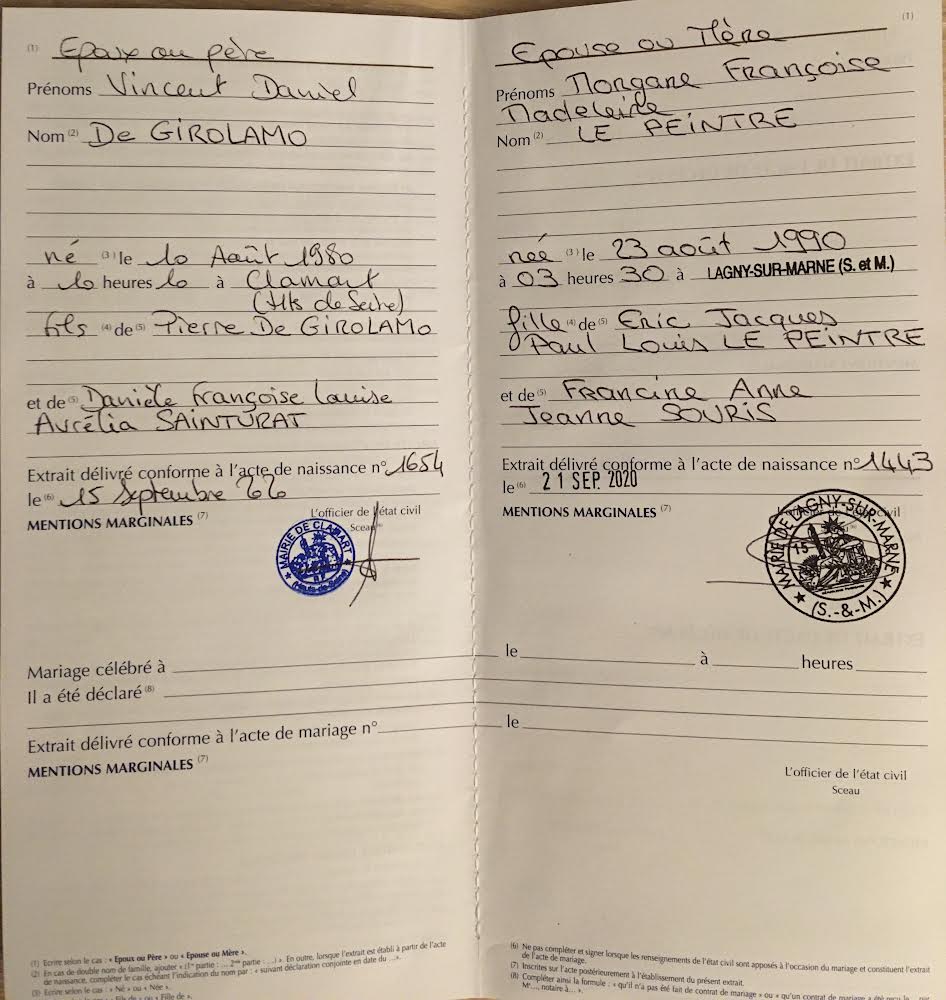 (1) Epoux ou père
Prénoms Vincent Daniel
Nom (2) De GIROLAMO
né (3) le 10 Août 1980
à 10 heures 10 à Clamart
(Hts de Seine)
fils (4) de (5) Pierre De GIROLAMO
et de (5) Danièle Françoise Louise
Aurélia SAINTURAT
Extrait délivré conforme à l'acte de naissance n° 1654
le (6) 15 Septembre 2020
MENTIONS MARGINALES (7)
L'officier de l'état civil
Sceau
MAIRIE DE CLAMART
(Hauts-de-Seine)
(1)
Epouse ou Mère
Prénoms Morgane Françoise
Madeleine
Nom (2) LE PEINTRE
née (3) le 23 août 1990
à 03 heures 30 à LAGNY-SUR-MARNE (S. et M.)
fille (4) de (5) Eric Jacques
Paul Louis LE PEINTRE
et de (5) Francine Anne
Jeanne SOURIS
Extrait délivré conforme à l'acte de naissance n° 1443
le (6) 21 SEP. 2020
MENTIONS MARGINALES (7)
civil
MAIRIE DE LAGNY-SUR-MARNE
15
(S.-&-M.)
Mariage célébré à le à heures
Il a été déclaré (8)
Extrait délivré conforme à l'acte de mariage n° le
MENTIONS MARGINALES (7)
L'officier de l'état civil
Sceau
(1) Ecrire selon le cas : « Epoux ou Père » ou « Epouse ou Mère ».
(2) En cas de double nom de famille, ajouter « (1re partie : ... 2nde partie : ...) ». En outre, lorsque l'extrait est établi à partir de l'acte
de naissance, compléter le cas échéant l'indication du nom par : « suivant déclaration conjointe en date du ... ».
(3) Ecrire selon le cas : « Né » ou « Née ».
« Fils de » ou « Fille de ».
(6) Ne pas compléter et signer lorsque les renseignements de l'état civil sont apposés à l'occasion du mariage et constituent l'extrait
de l'acte de mariage.
(7) Inscrites sur l'acte postérieurement à l'établissement du présent extrait.
(8) Compléter ainsi la formule : « qu'il n'a pas été fait de contrat de mariage » ou « qu'un contrat de mariage a été reçu le
Me..., notaire à... ».